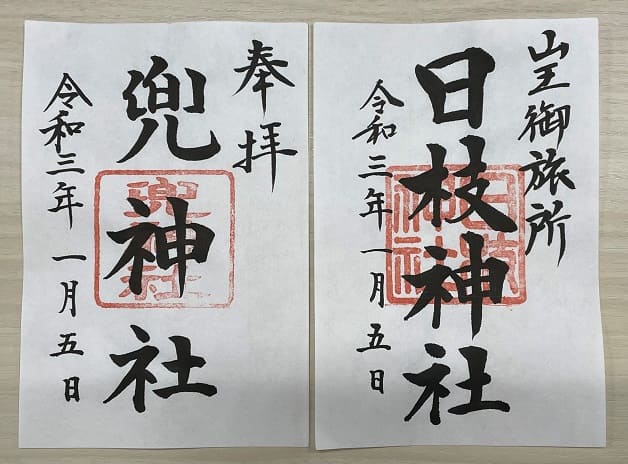 山王御旅所
日枝神社
令和三年一月五日
奉拝
兜神社
令和三年一月五日